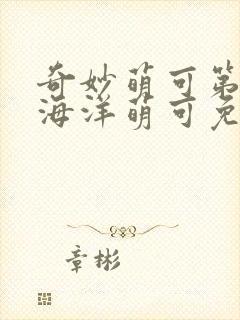 奇妙萌可第
海洋萌可免
章彬